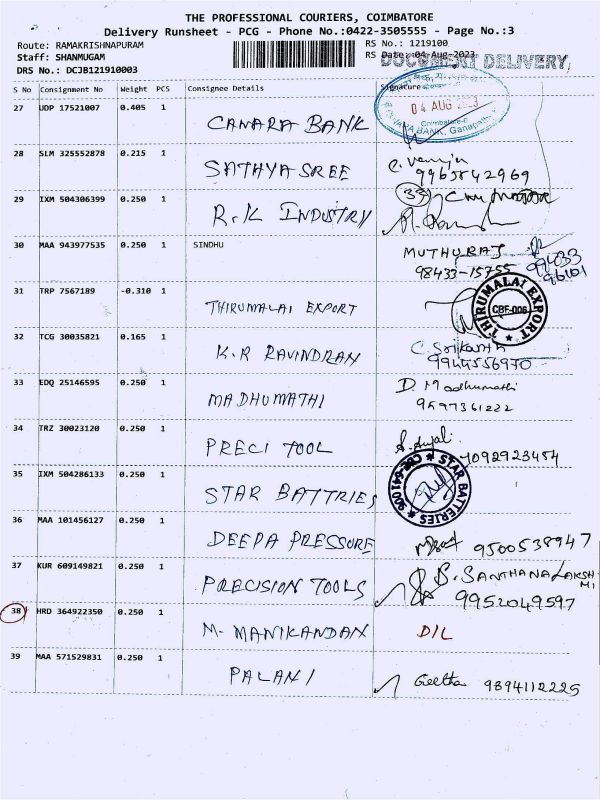 THE PROFESSIONAL COURIERS, COIMBATORE
Delivery Runsheet - PCG - Phone No.:0422-3505555 - Page No.:3
Route: RAMAKRISHNAPURAM
RS No.: 1219100
Staff: SHANMUGAM
RS Date: 04-Aug-2023
DOCUMENT DELIVERY
DRS No.: DCJB121910003
S No Consignment No Weight PCS Consignee Details Signature
27 UDP 17521007 0.405 1 CANARA BANK
04 AUG 2023
Coimbatore-6
CANARA BANK, Ganapathy
28 SLM 325552878 0.215 1 SATHYA SREE
29 IXM 504306399 0.250 1 R.K INDUSTRY
30 MAA 943977535 0.250 1 SINDHU MUTHURAJ
98433-15755 99433
96101
31 TRP 7567189 -0.310 1 THIRUMALAI EXPORT
THIRUMALAI EXPORT
CBF-006
32 TCG 30035821 0.165 1 K.R RAVINDRAN C Srikanth
9944556970
33 EDQ 25146595 0.250 1 MADHUMATHI D. Madhumathi
9597361222
34 TRZ 30023120 0.250 1 PRECI TOOL
7092923454
35 IXM 504286133 0.250 1 STAR BATTRIES
STAR BATTERIES
CBE-641006
36 MAA 101456127 0.250 1 DEEPA PRESSURE 9500538947
37 KUR 609149821 0.250 1 PRECISION TOOLS B. SANTHANA LAKSHMI
9952049597
38 HRD 364922350 0.250 1 M. MANIKANDAN D/L
39 MAA 571529831 0.250 1 PALANI Geetha 9894112225